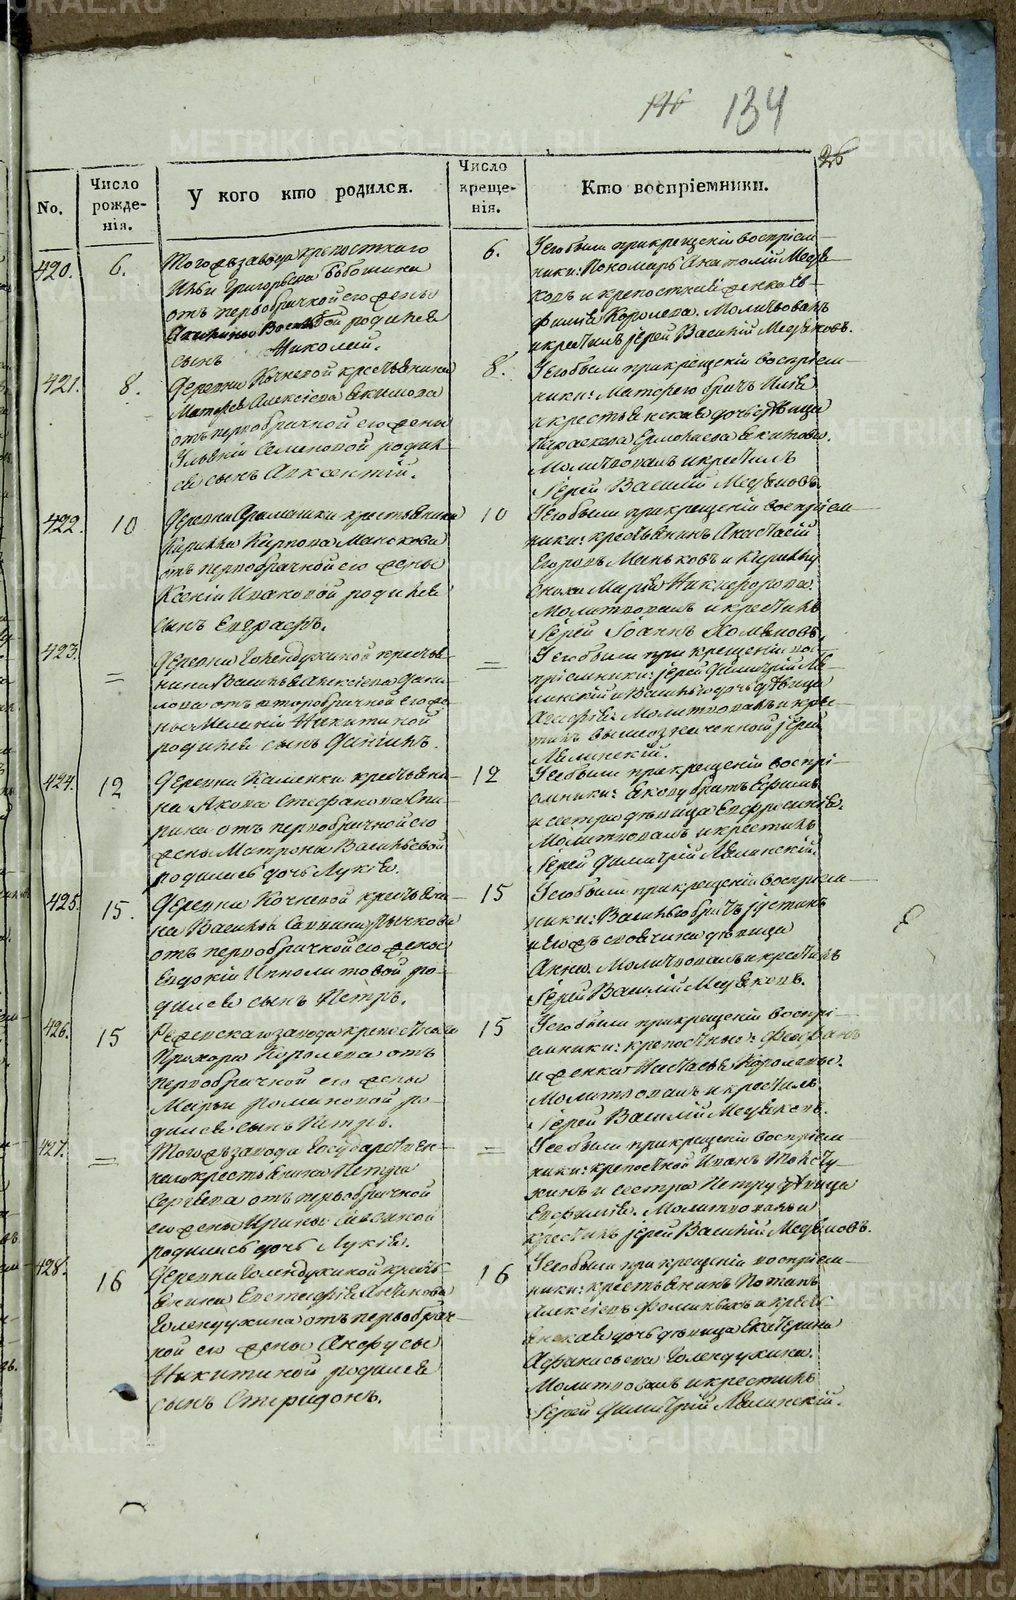 146 134
26
No.
Число рожде-нія.
У кого кто родился.
Число креще-нія.
Кто воспріемники.
420.
6.
Тогожъ завода крѣпостнаго
Григорьева
отъ первобрачной его жены
родился
сынъ Николай.
6.
У сего были при крещеніи воспріем-
ники: Пономарь Анатолій Медвѣ-
ковъ и крепостная женка Ев-
фимія Королева. Молитвовалъ
и крестилъ іерей Василій Медвѣковъ.
421.
8.
Деревни Кочневой крестьянина
Матфея Алексіева Екимова
отъ первобрачной его жены
Ульяніи Семеновой родил-
ся сынъ Авксентій.
8.
У сего были при крещеніи воспріем-
ники: Матфею братъ Илія
и крестьянская дочь дѣвица
Параскева Ермолаева Екимова.
Молитвовалъ и крестилъ
Іерей Василій Медвѣковъ.
422.
10
Деревни Ромашки крестьянина
Кирилла Карпова Манькова
отъ первобрачной его жены
Ксеніи Ивановой родился
сынъ Евграфъ.
10
У сего были при крещеніи воспріем-
ники: крестьянинъ Анастасій
Егоровъ Маньковъ и Кириллу
сноха Марія Никифорова.
Молитвовалъ и крестилъ
Іерей Іоаннъ
423.
=
Деревни Голендухиной крестья-
нина Василья Алексіева Дани-
лова отъ второбрачной его же-
ны Меланіи Никитиной
родился сынъ Даніилъ.
=
У сего были при крещеніи вос-
пріемники: іерей Димитрій Ля-
линскій и Василью дочь дѣвица
Агафія. Молитвовалъ и крес-
тилъ вышеозначенной іерей
Лялинскій.
424.
12
Деревни Каменки крестьяни-
на Якова Стефанова Спи-
рина отъ первобрачной его
жены Матроны Васильевой
родилась дочь Лукія.
12
У сей были при крещеніи воспрі-
емники: Якову братъ Ефимъ
и сестра дѣвица Евфросинія.
Молитвовалъ и крестилъ
Іерей Димитрій Лялинскій.
425.
15.
Деревни Кочневой крестьяни-
на Василья Саввина Пычкова
отъ первобрачной его жены
Евдокіи Ипполитовой ро-
дился сынъ Петръ.
15
У сего были при крещеніи воспріем-
ники: Василью братъ Іустинъ
и его жъ своячина дѣвица
Анна. Молитвовалъ и крестилъ
Іерей Василій Медвѣковъ.
426.
15
Режевскаго завода крепостнаго
Прохора Королева отъ
первобрачной его жены
Марьи Фоминовой ро-
дился сынъ Петръ.
15
У сего были при крещеніи воспрі-
емники: крепостные: Феофанъ
и женка Настасья Королевы.
Молитвовалъ и крестилъ
Іерей Василій Медвѣковъ.
427.
=
Тогожъ завода государствен-
наго крестьянина Петра
Сергѣева отъ первобрачной
его жены Ирины
родилась дочь Лукія.
=
У сей были при крещеніи воспріем-
ники: крепостной Иванъ
и сестра Петру дѣвица
Евфимія. Молитвовалъ и
крестилъ іерей Василій Медвѣковъ.
428.
16
Деревни Голендухиной кресть-
янина Евстафія
Голендухина отъ первобрач-
ной его жены Анфусы
Никитиной родился
сынъ Спиридонъ.
16
У сего были при крещеніи воспріем-
ники: крестьянинъ Потапъ
Алексіевъ Фоминыхъ и кресть-
янская дочь дѣвица Екатерина
Афанасьева Голендухина.
Молитвовалъ и крестилъ
Іерей Димитрій Лялинскій.
METRIKI.GASO-URAL.RU